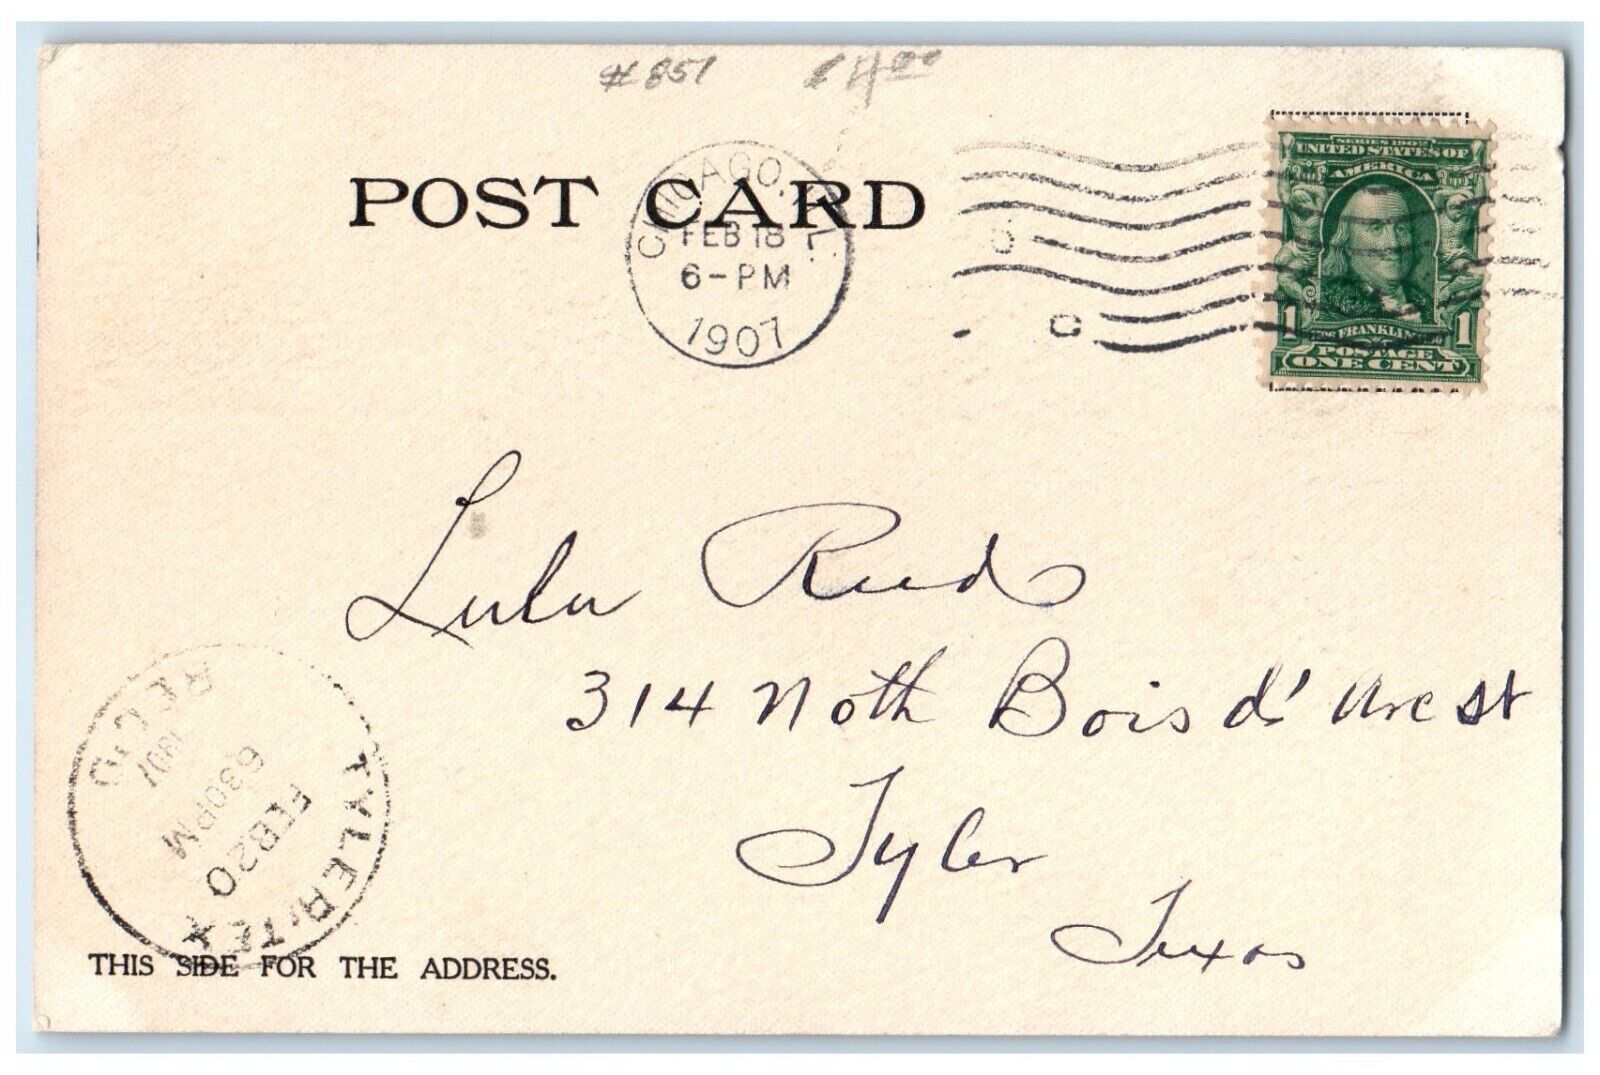 #851 $4.00
POST CARD
CHICAGO, ILL.
FEB 18
6-PM
1907
C
SERIES 1902
UNITED STATES OF
AMERICA
1 FRANKLIN 1
POSTAGE
ONE CENT
Lulu Reeds
314 Noth Bois d' Arc St
Tyler
Texas
TYLER, TEX
FEB 20
630PM
1907
REC'D
THIS SIDE FOR THE ADDRESS.